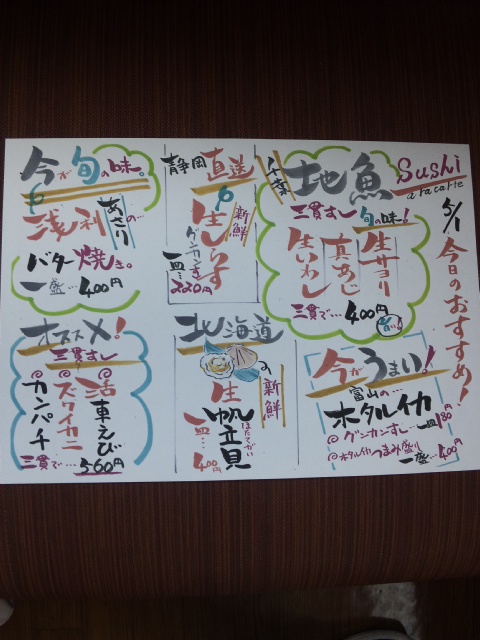 Sushi
a racarte
5/1
今日のおすすめ!
千葉
地魚
三貫すし
旬の味!
生サヨリ
真あじ
生いわし
三貫で…400円
静岡直送
新鮮
生しらす
グンカンまき
一皿…220円
今が旬の味。
あさりの…
浅利
バター焼き。
一盛…400円
今がうまい!
富山の…
ホタルイカ
グンカンすし…一皿180円
ホタルイカつまみ盛り
一盛…400円
北海道
の新鮮
生帆立貝
ほたてがい
一皿…400円
オススメ!
三貫すし
活車えび
ズワイカニ
カンパチ
三貫で…560円